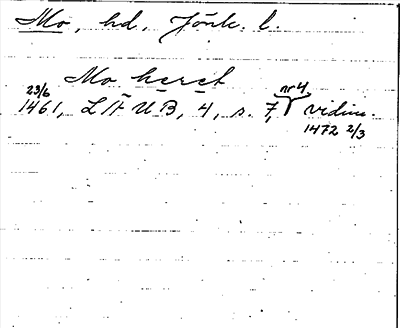 Mo, hd, Jönk. l.
Mo heret
23/6 nr 4,
1461, LHUB, 4, s. 7, vidim.
1472 2/3